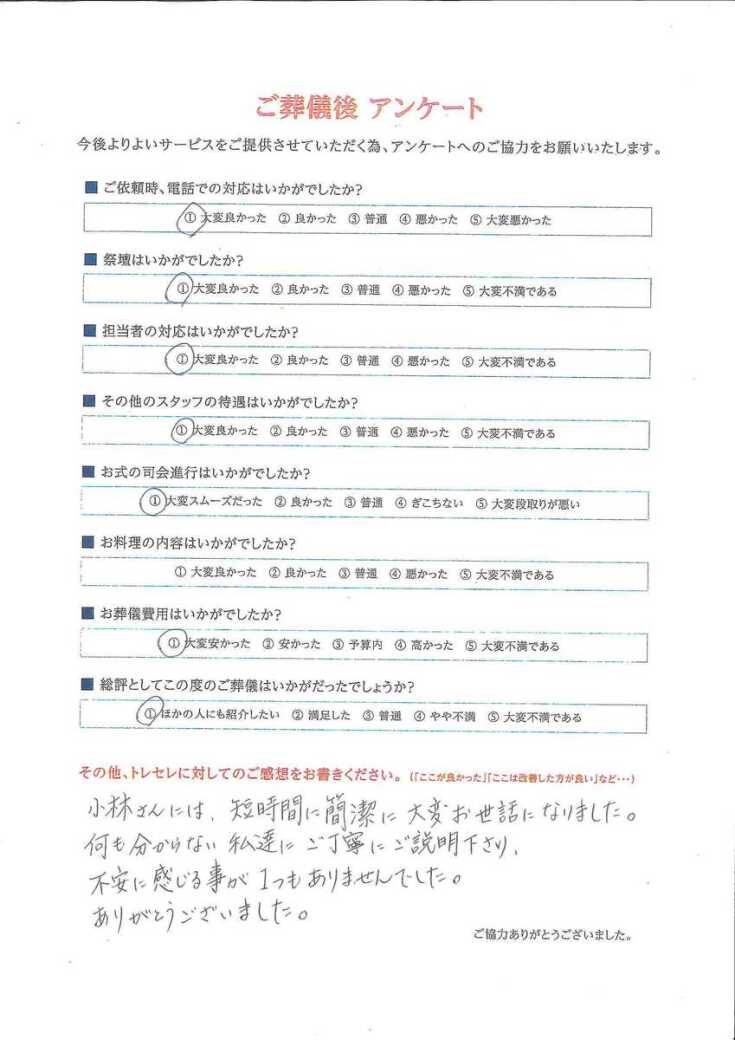 ご葬儀後 アンケート
今後よりよいサービスをご提供させていただく為、アンケートへのご協力をお願いいたします。
■ ご依頼時、電話での対応はいかがでしたか?
① 大変良かった ② 良かった ③ 普通 ④ 悪かった ⑤ 大変悪かった
■ 祭壇はいかがでしたか?
① 大変良かった ② 良かった ③ 普通 ④ 悪かった ⑤ 大変不満である
■ 担当者の対応はいかがでしたか?
① 大変良かった ② 良かった ③ 普通 ④ 悪かった ⑤ 大変不満である
■ その他のスタッフの待遇はいかがでしたか?
① 大変良かった ② 良かった ③ 普通 ④ 悪かった ⑤ 大変不満である
■ お式の司会進行はいかがでしたか?
① 大変スムーズだった ② 良かった ③ 普通 ④ ぎこちない ⑤ 大変段取りが悪い
■ お料理の内容はいかがでしたか?
① 大変良かった ② 良かった ③ 普通 ④ 悪かった ⑤ 大変不満である
■ お葬儀費用はいかがでしたか?
① 大変安かった ② 安かった ③ 予算内 ④ 高かった ⑤ 大変不満である
■ 総評としてこの度のご葬儀はいかがだったでしょうか?
① ほかの人にも紹介したい ② 満足した ③ 普通 ④ やや不満 ⑤ 大変不満である
その他、トレセレに対してのご感想をお書きください。(「ここが良かった」「ここは改善した方が良い」など・・・)
小林さんには、短時間に簡潔に大変お世話になりました。
何も分からない私達にご丁寧にご説明下さり、
不安に感じる事が1つもありませんでした。
ありがとうございました。
ご協力ありがとうございました。